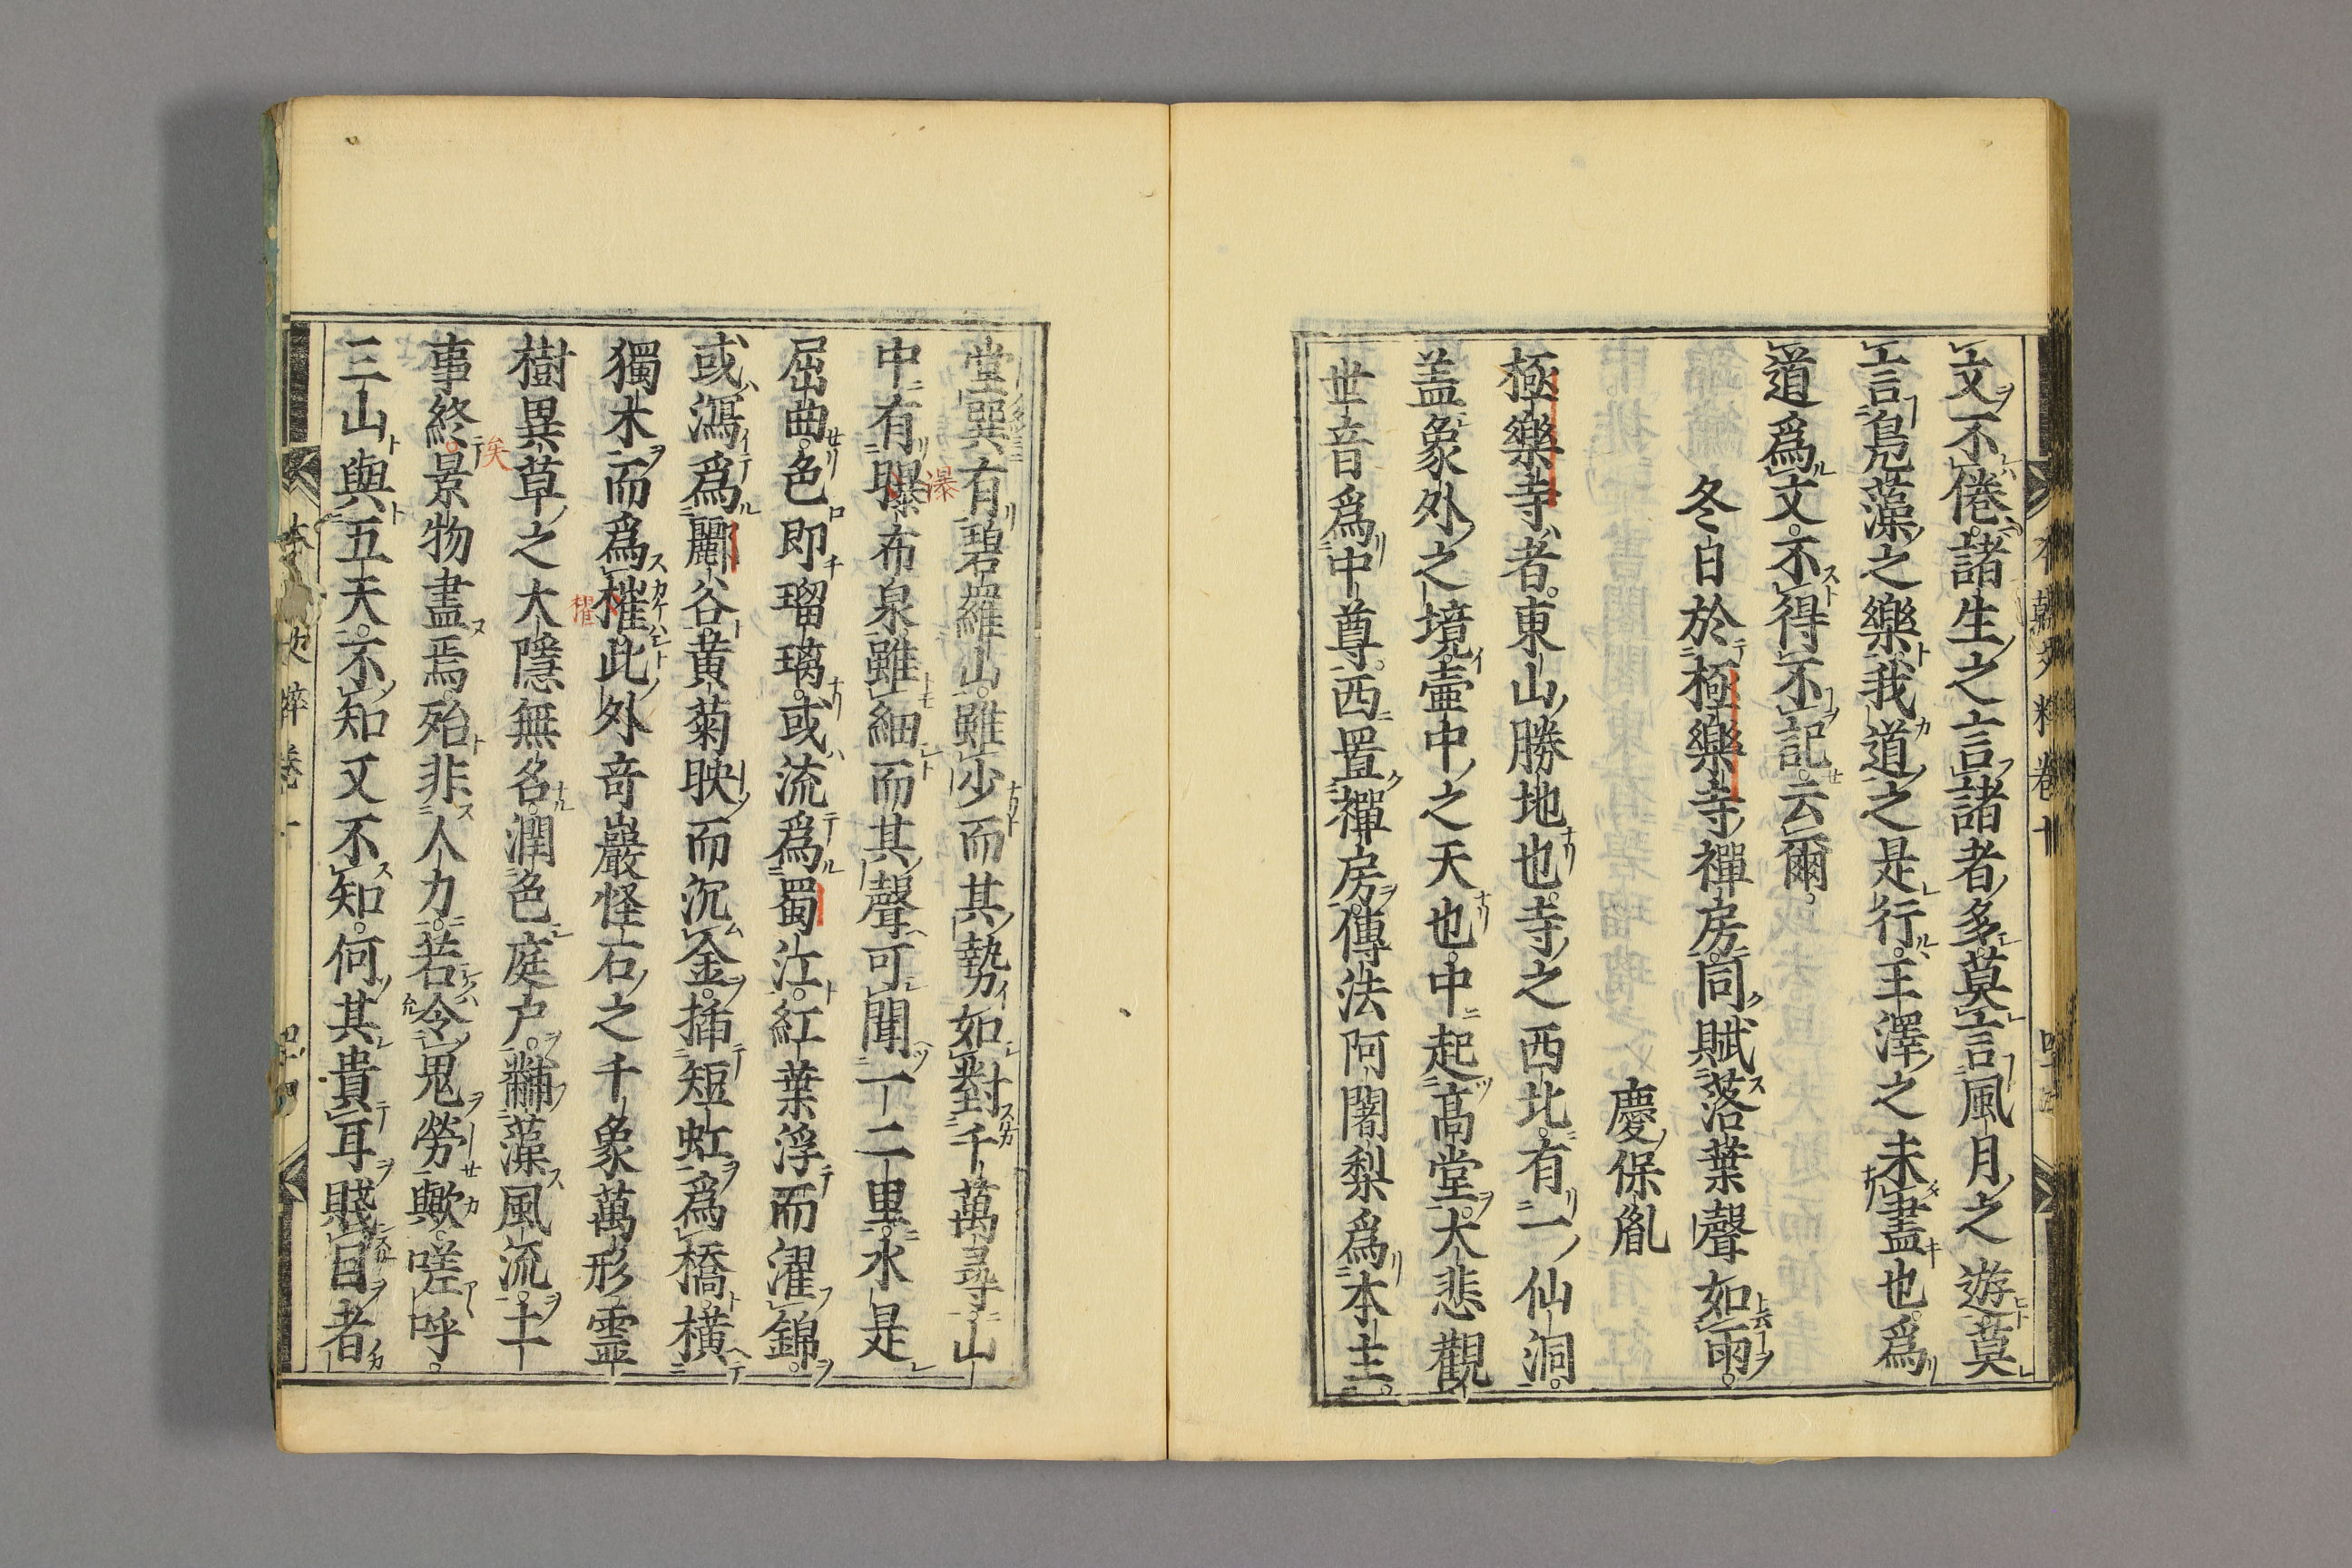 文不倦。諸生之言諸者多。莫言風月之遊。莫
言鳧藻之樂。我道之是行。王澤之未盡也。爲
道爲文。不得不記。云爾。
冬日於極樂寺禪房。同賦落葉聲如雨。
慶保胤
極樂寺者。東山勝地也。寺之西北。有一仙洞。
盖象外之境。壷中之天也。中起高堂。大悲觀
世音爲中尊。西置禪房。傳法阿闍梨爲本主。
堂巽有碧羅山。雖少而其勢如對千萬尋。山
中有曝布泉。雖細而其聲可聞一二里。水是
瀑
屈曲。色即瑠璃。或流爲蜀江。紅葉浮而濯錦。
或瀉爲酈谷。黄菊映而沉金。揷短虹爲橋。横
獨木而爲㰌。此外奇巖怪石之千象萬形。霊
樹異草之大隱無名。潤色庭戸。黼藻風流。土
事終。景物盡焉。殆非人力。若令鬼勞歟。嗟呼。
矣
三山與五天。不知又不知。何其貴耳賤目者
本朝文粹卷十